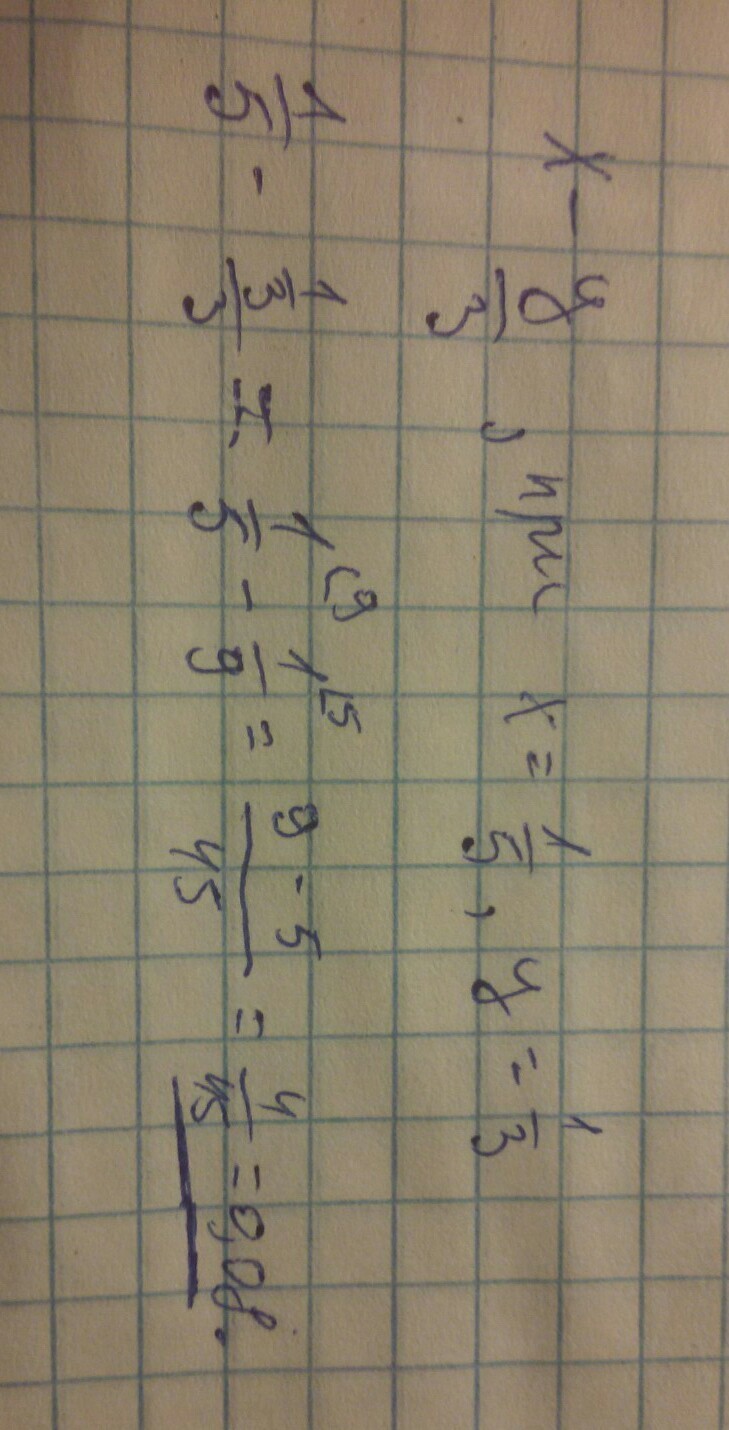 x - y/3 , при x = 1/5 , y = 1/3
1/5 - (1/3)/3 = 1/5 (9 - 1/9 (5 = (9 - 5)/45 = 4/45 = 0,08.